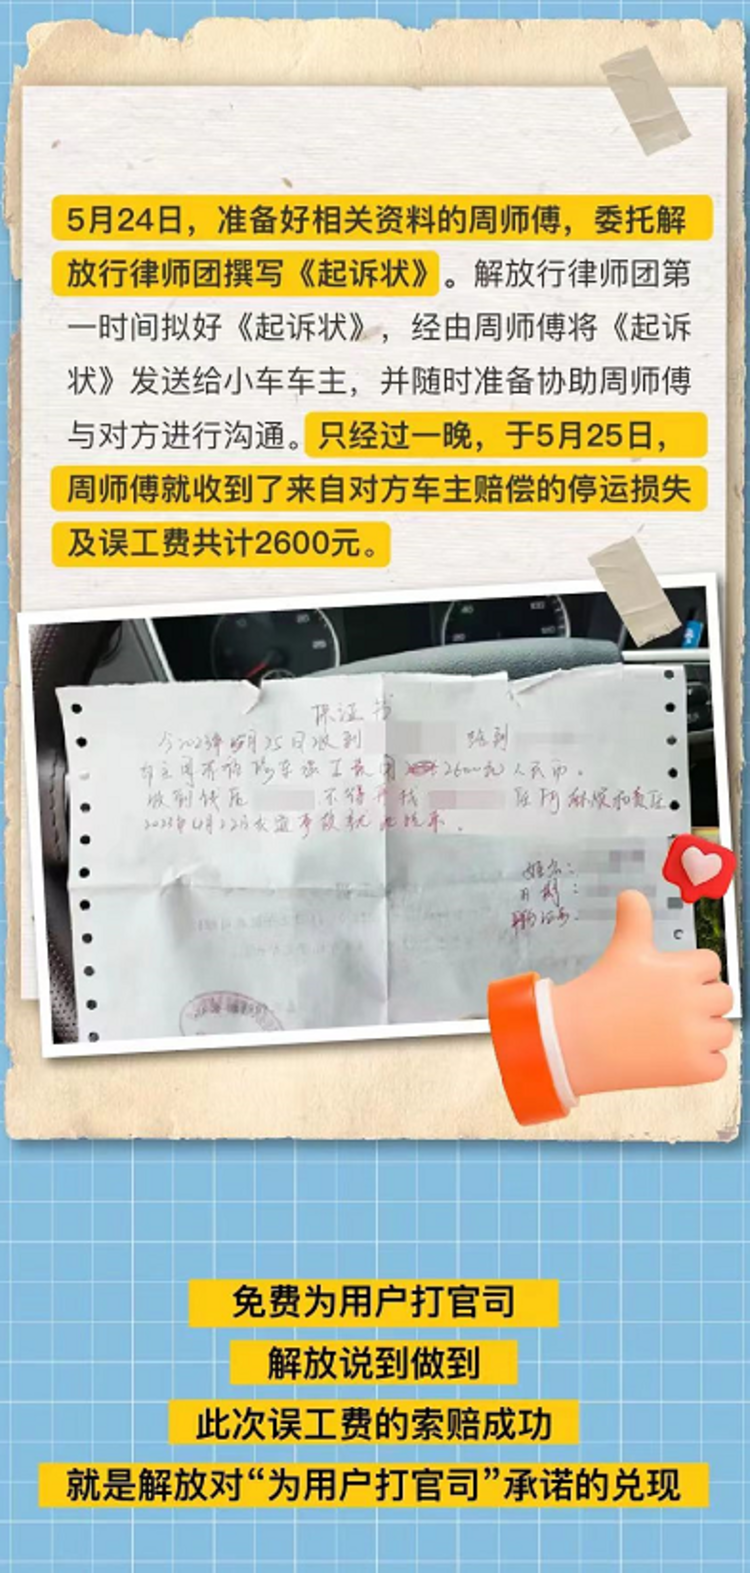 5月24日，准备好相关资料的周师傅，委托解
放行律师团撰写《起诉状》。解放行律师团第
一时间拟好《起诉状》，经由周师傅将《起诉
状》发送给小车车主，并随时准备协助周师傅
与对方进行沟通。只经过一晚，于5月25日，
周师傅就收到了来自对方车主赔偿的停运损失
及误工费共计2600元。
保证书
今2023年5月25日收到
车主周师傅修车误工费用 2600元人民币。
收到钱后 不得再找 任何麻烦和责任
2023年4月22日
姓名：
日期：
免费为用户打官司
解放说到做到
此次误工费的索赔成功
就是解放对“为用户打官司”承诺的兑现